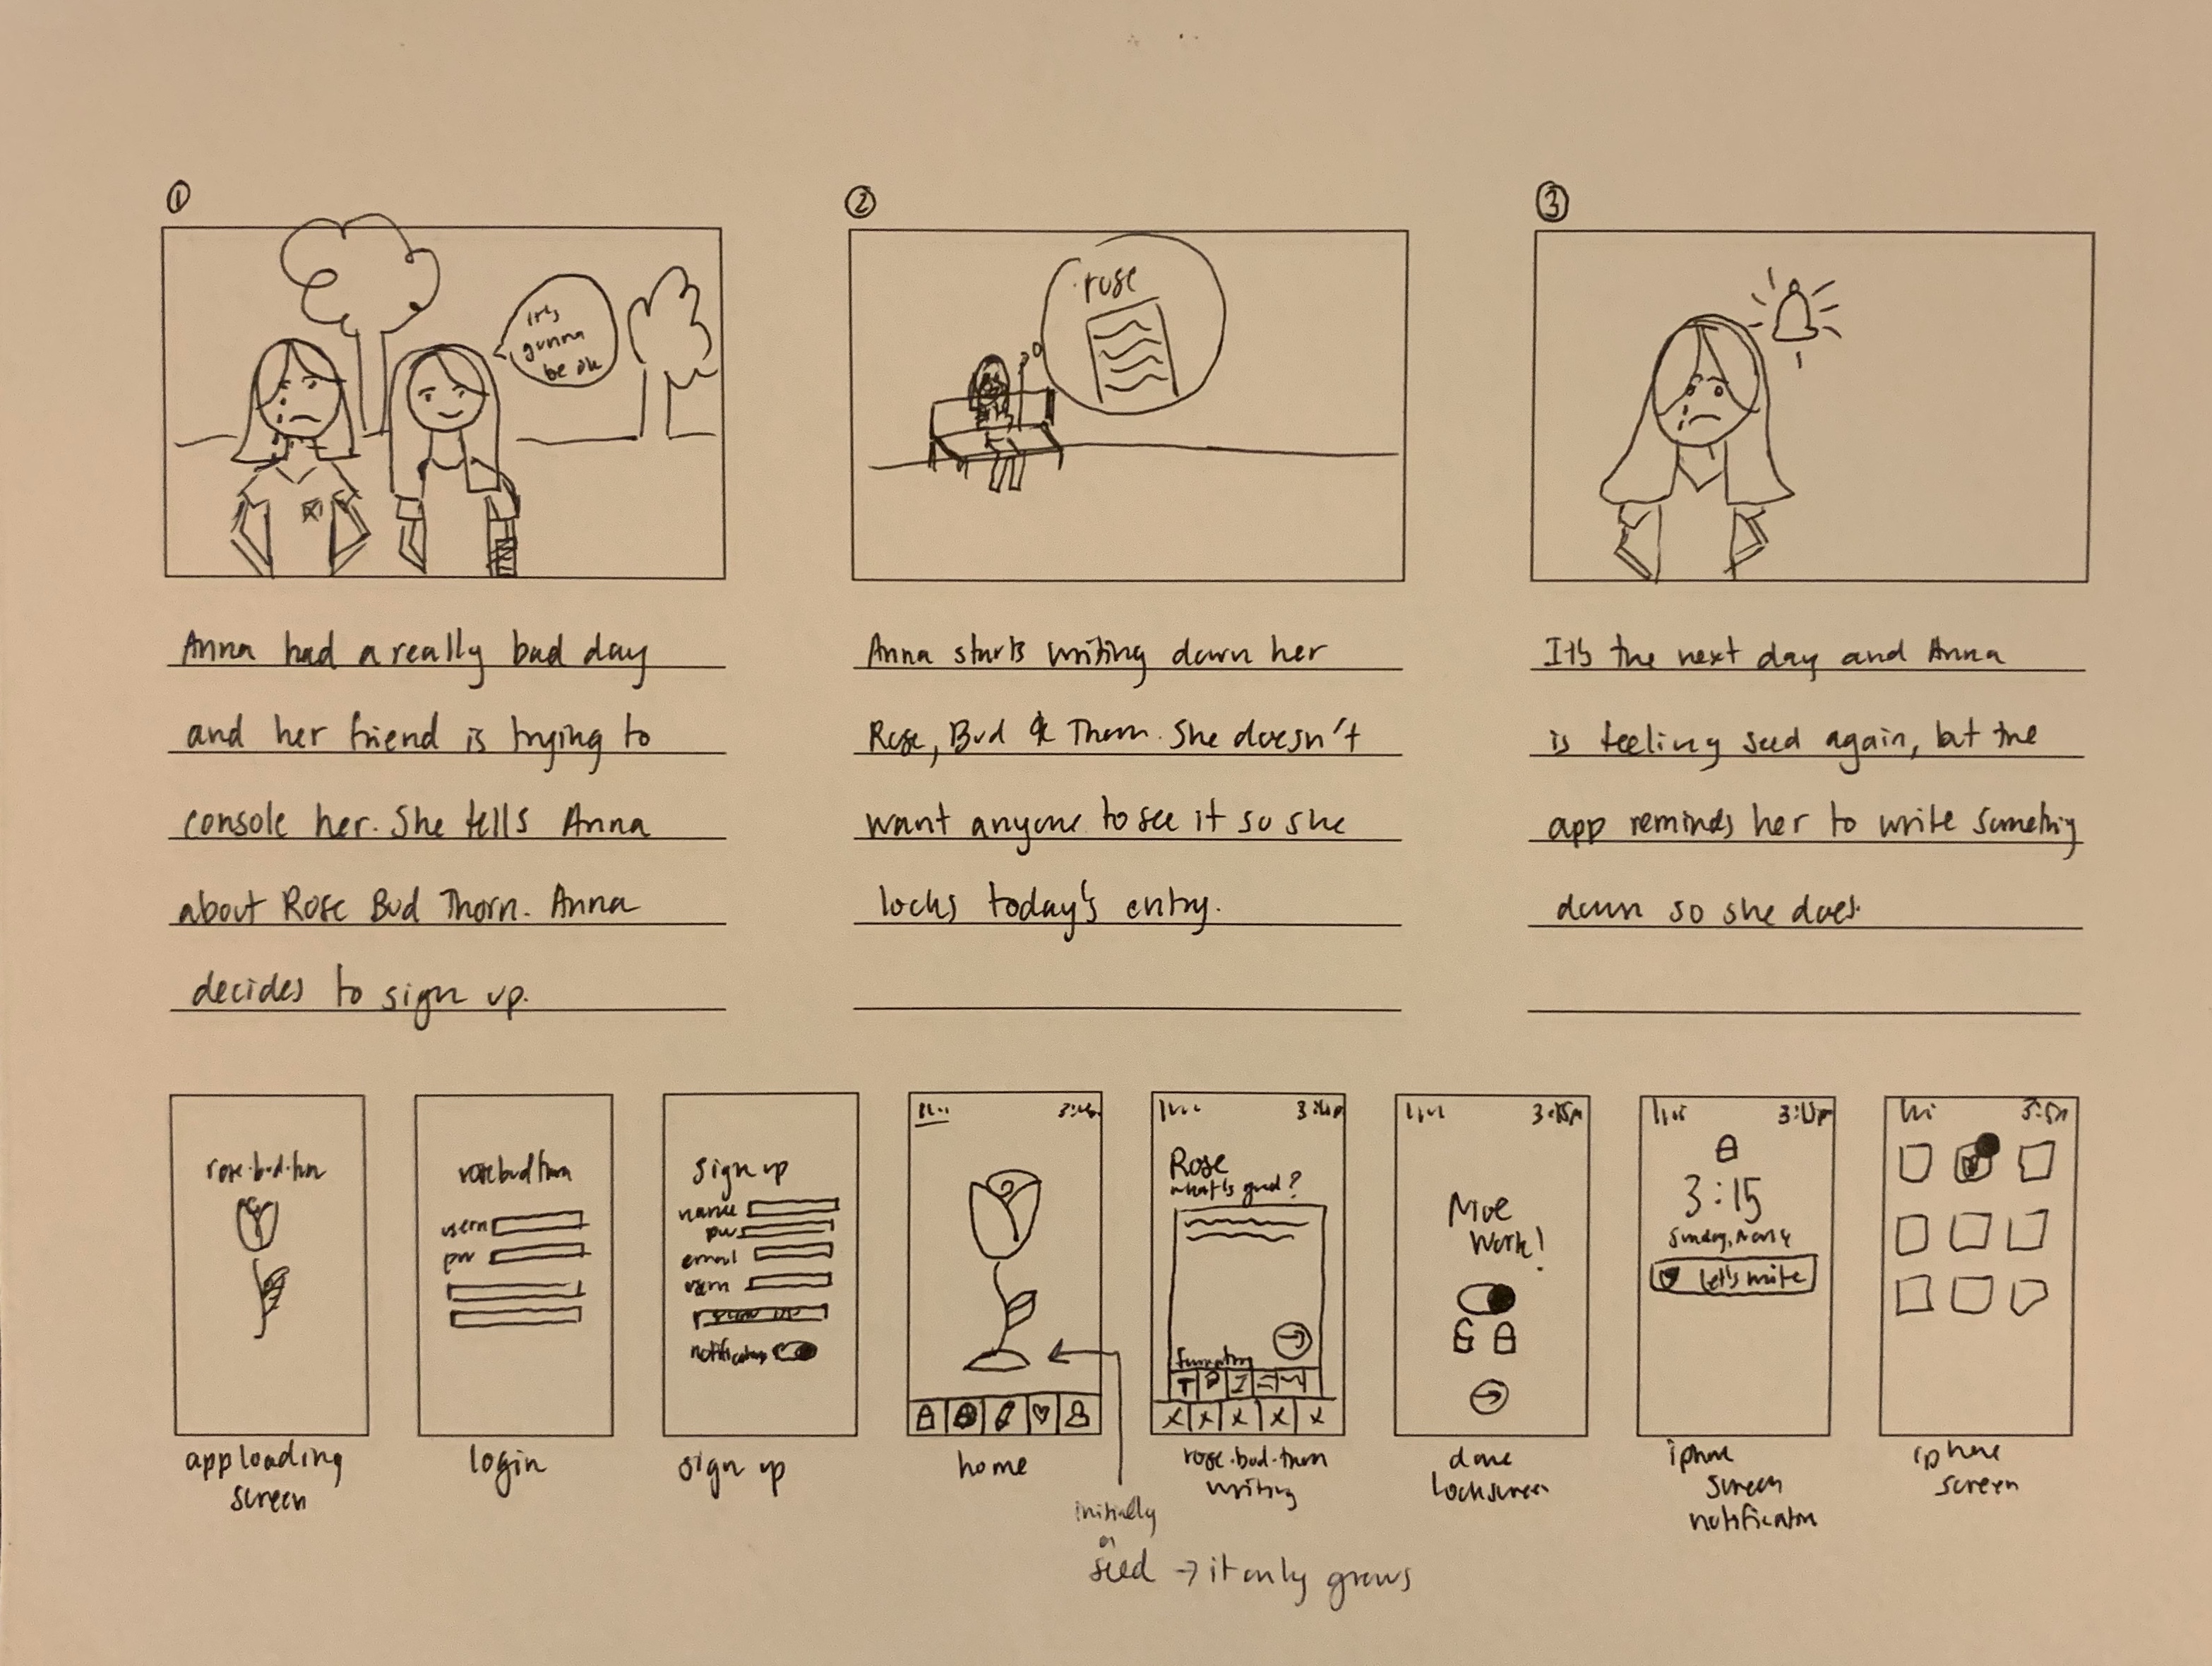 ①
②
③
it's
gunna
be ok
rose
Anna had a really bad day
and her friend is trying to
console her. She tells Anna
about Rose Bud Thorn. Anna
decides to sign up.
Anna starts writing down her
Rose, Bud & Thorn. She doesn't
want anyone to see it so she
locks today's entry.
It's the next day and Anna
is feeling sad again, but the
app reminds her to write something
down so she does.
rose·bud·thorn
app loading
screen
rosebudthorn
usern
pw
login
sign up
name
pw
email
usern
sign up
notifications
sign up
home
Rose
what's good?
formatting
T
I
x x x x x
rose·bud·thorn
writing
3:15pm
Nice
Work!
done
lockscreen
3:15pm
3:15
Sunday,
let's write
iphone
screen
notification
iphone
screen
initially
a
seed → it only grows